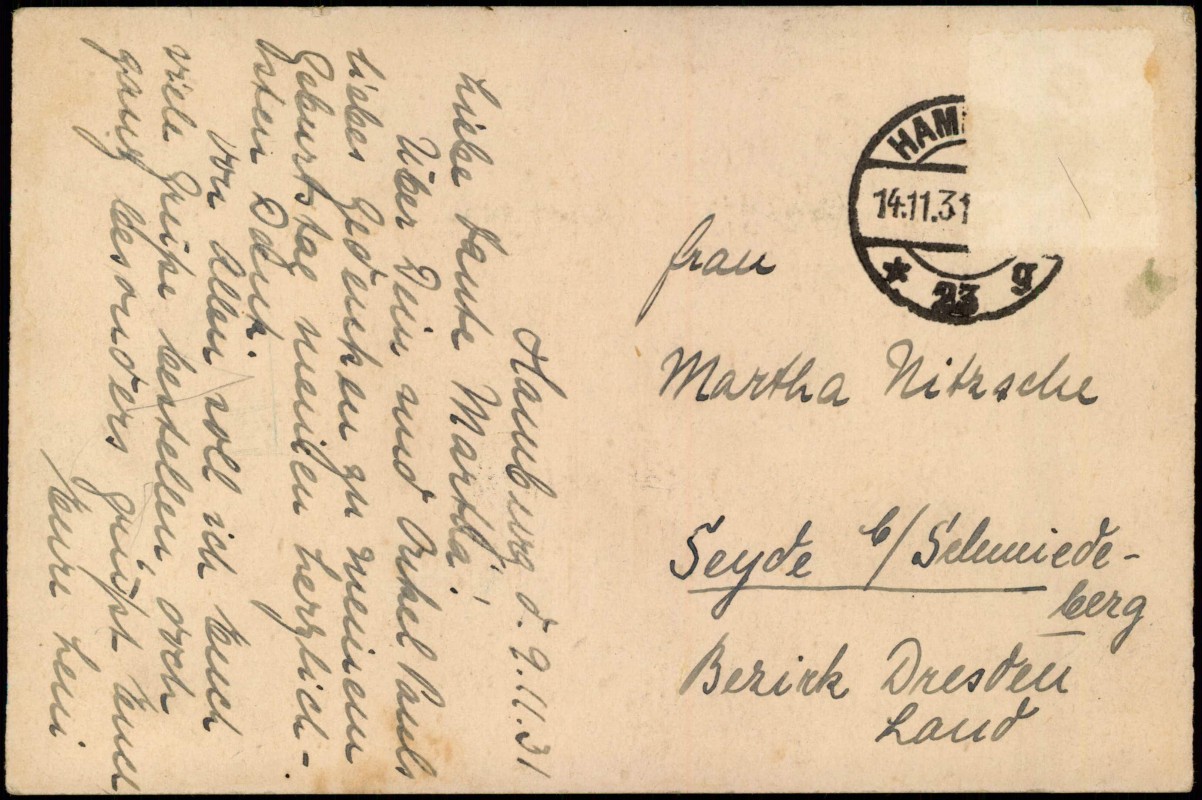 Hamburg d. 9.11.31
Liebe Tante Martha!
Über Dein und Onkel Pauls
liebes Gedenken zu meinem
Geburtstag meinen herzlich-
sten Dank.
Von Allen soll ich Euch
viele Grüße bestellen, doch
ganz besonders grüßt Euch
Eure Leni
HAM
14.11.31
* 23 g
Frau
Martha Nitzsche
Seyde b/ Schmiede-
berg
Bezirk Dresden
Land